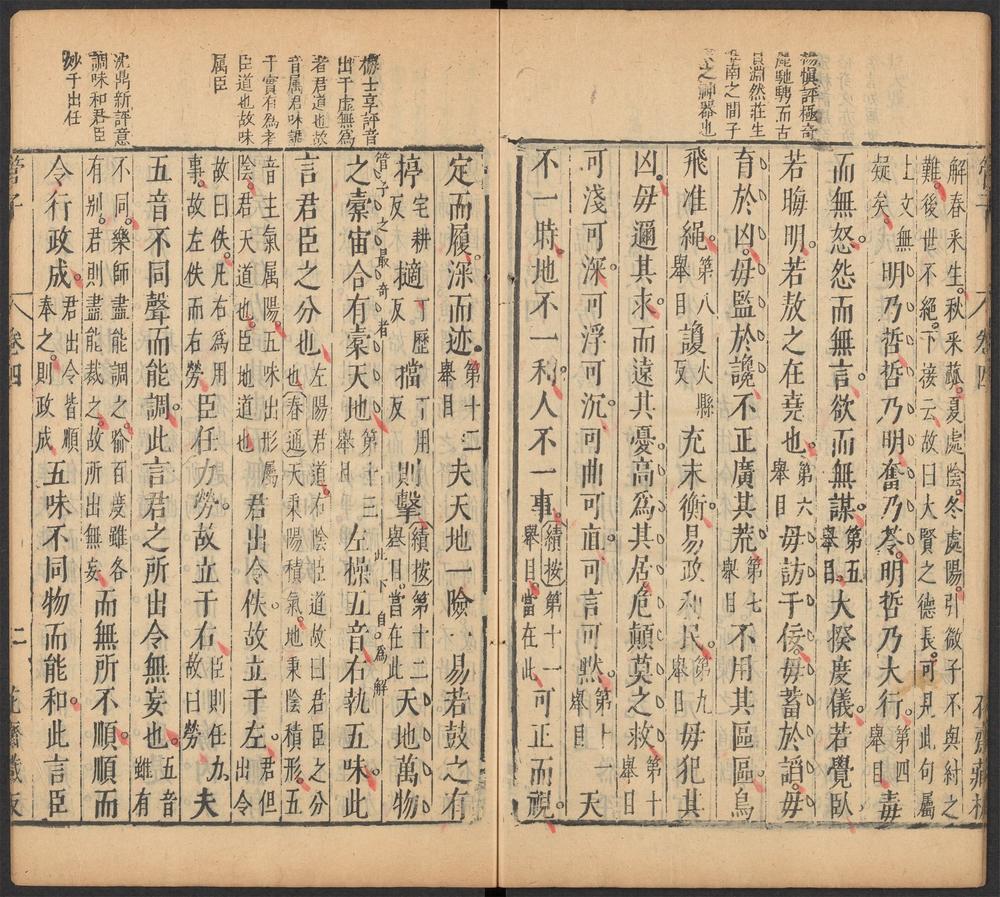 楊慎評極奇
麗馳騁而古
質淵然莊生
淮南之間子
家之神器也
解春采生秋采蓏夏處陰冬處陽引微子不與紂之
難後世不絕下接云故曰大賢之德長可見此句屬
上文無
疑矣
明乃哲哲乃明奮乃苓明哲乃大行
第四
舉目
毒
而無怒怨而無言欲而無謀
第五
舉目
大揆度儀若覺臥
若晦明若敖之在堯也
第六
舉目
毋訪于佞毋蓄於諂毋
育於凶毋監於讒不正廣其荒
第七
舉目
不用其區區鳥
飛准繩
第八
舉目
讂
火縣
反
充末衡易政利民
第九
舉目
毋犯其
凶毋邇其求而遠其憂高爲其居危顛莫之救
第十
舉目
可淺可深可浮可沉可曲可直可言可默
第十一
舉目
天
不一時地不一利人不一事
績按第十一
舉目當在此
可正而視
定而履深而迹
第十二
舉目
夫天地一險一易若鼓之有
桲
宅耕
反
擿
丁歷
反
擋
丁用
反
則擊
績按第十二
舉目當在此
天地萬物
管子之最奇者
之橐宙合有橐天地
第十三
舉目
此下自爲解
左操五音右執五味此
言君臣之分也
左陽君道右陰臣道故曰君臣之分
也春通天秉陽積氣地秉陰積形五
音生氣屬陽五味出形屬
陰君天道也臣地道也
君出令佚故立于左
君但
出令
故曰佚凡右爲用
事故左佚而右勞
臣任力勞故立于右
臣則任力
故曰勞
夫
五音不同聲而能調此言君之所出令無妄也
五音
雖有
不同樂師盡能調之喻百度雖各
有別君則盡能裁之故所出無妄
而無所不順順而
令行政成
君出令皆順
奉之則政成
五味不同物而能和此言臣
梅士享評音
出于虛無爲
者君道也故
音屬君味調
于實有爲者
臣道也故味
屬臣
沈鼎新評意
調味和君臣
妙于出任
管子
卷四
二
花齋藏板